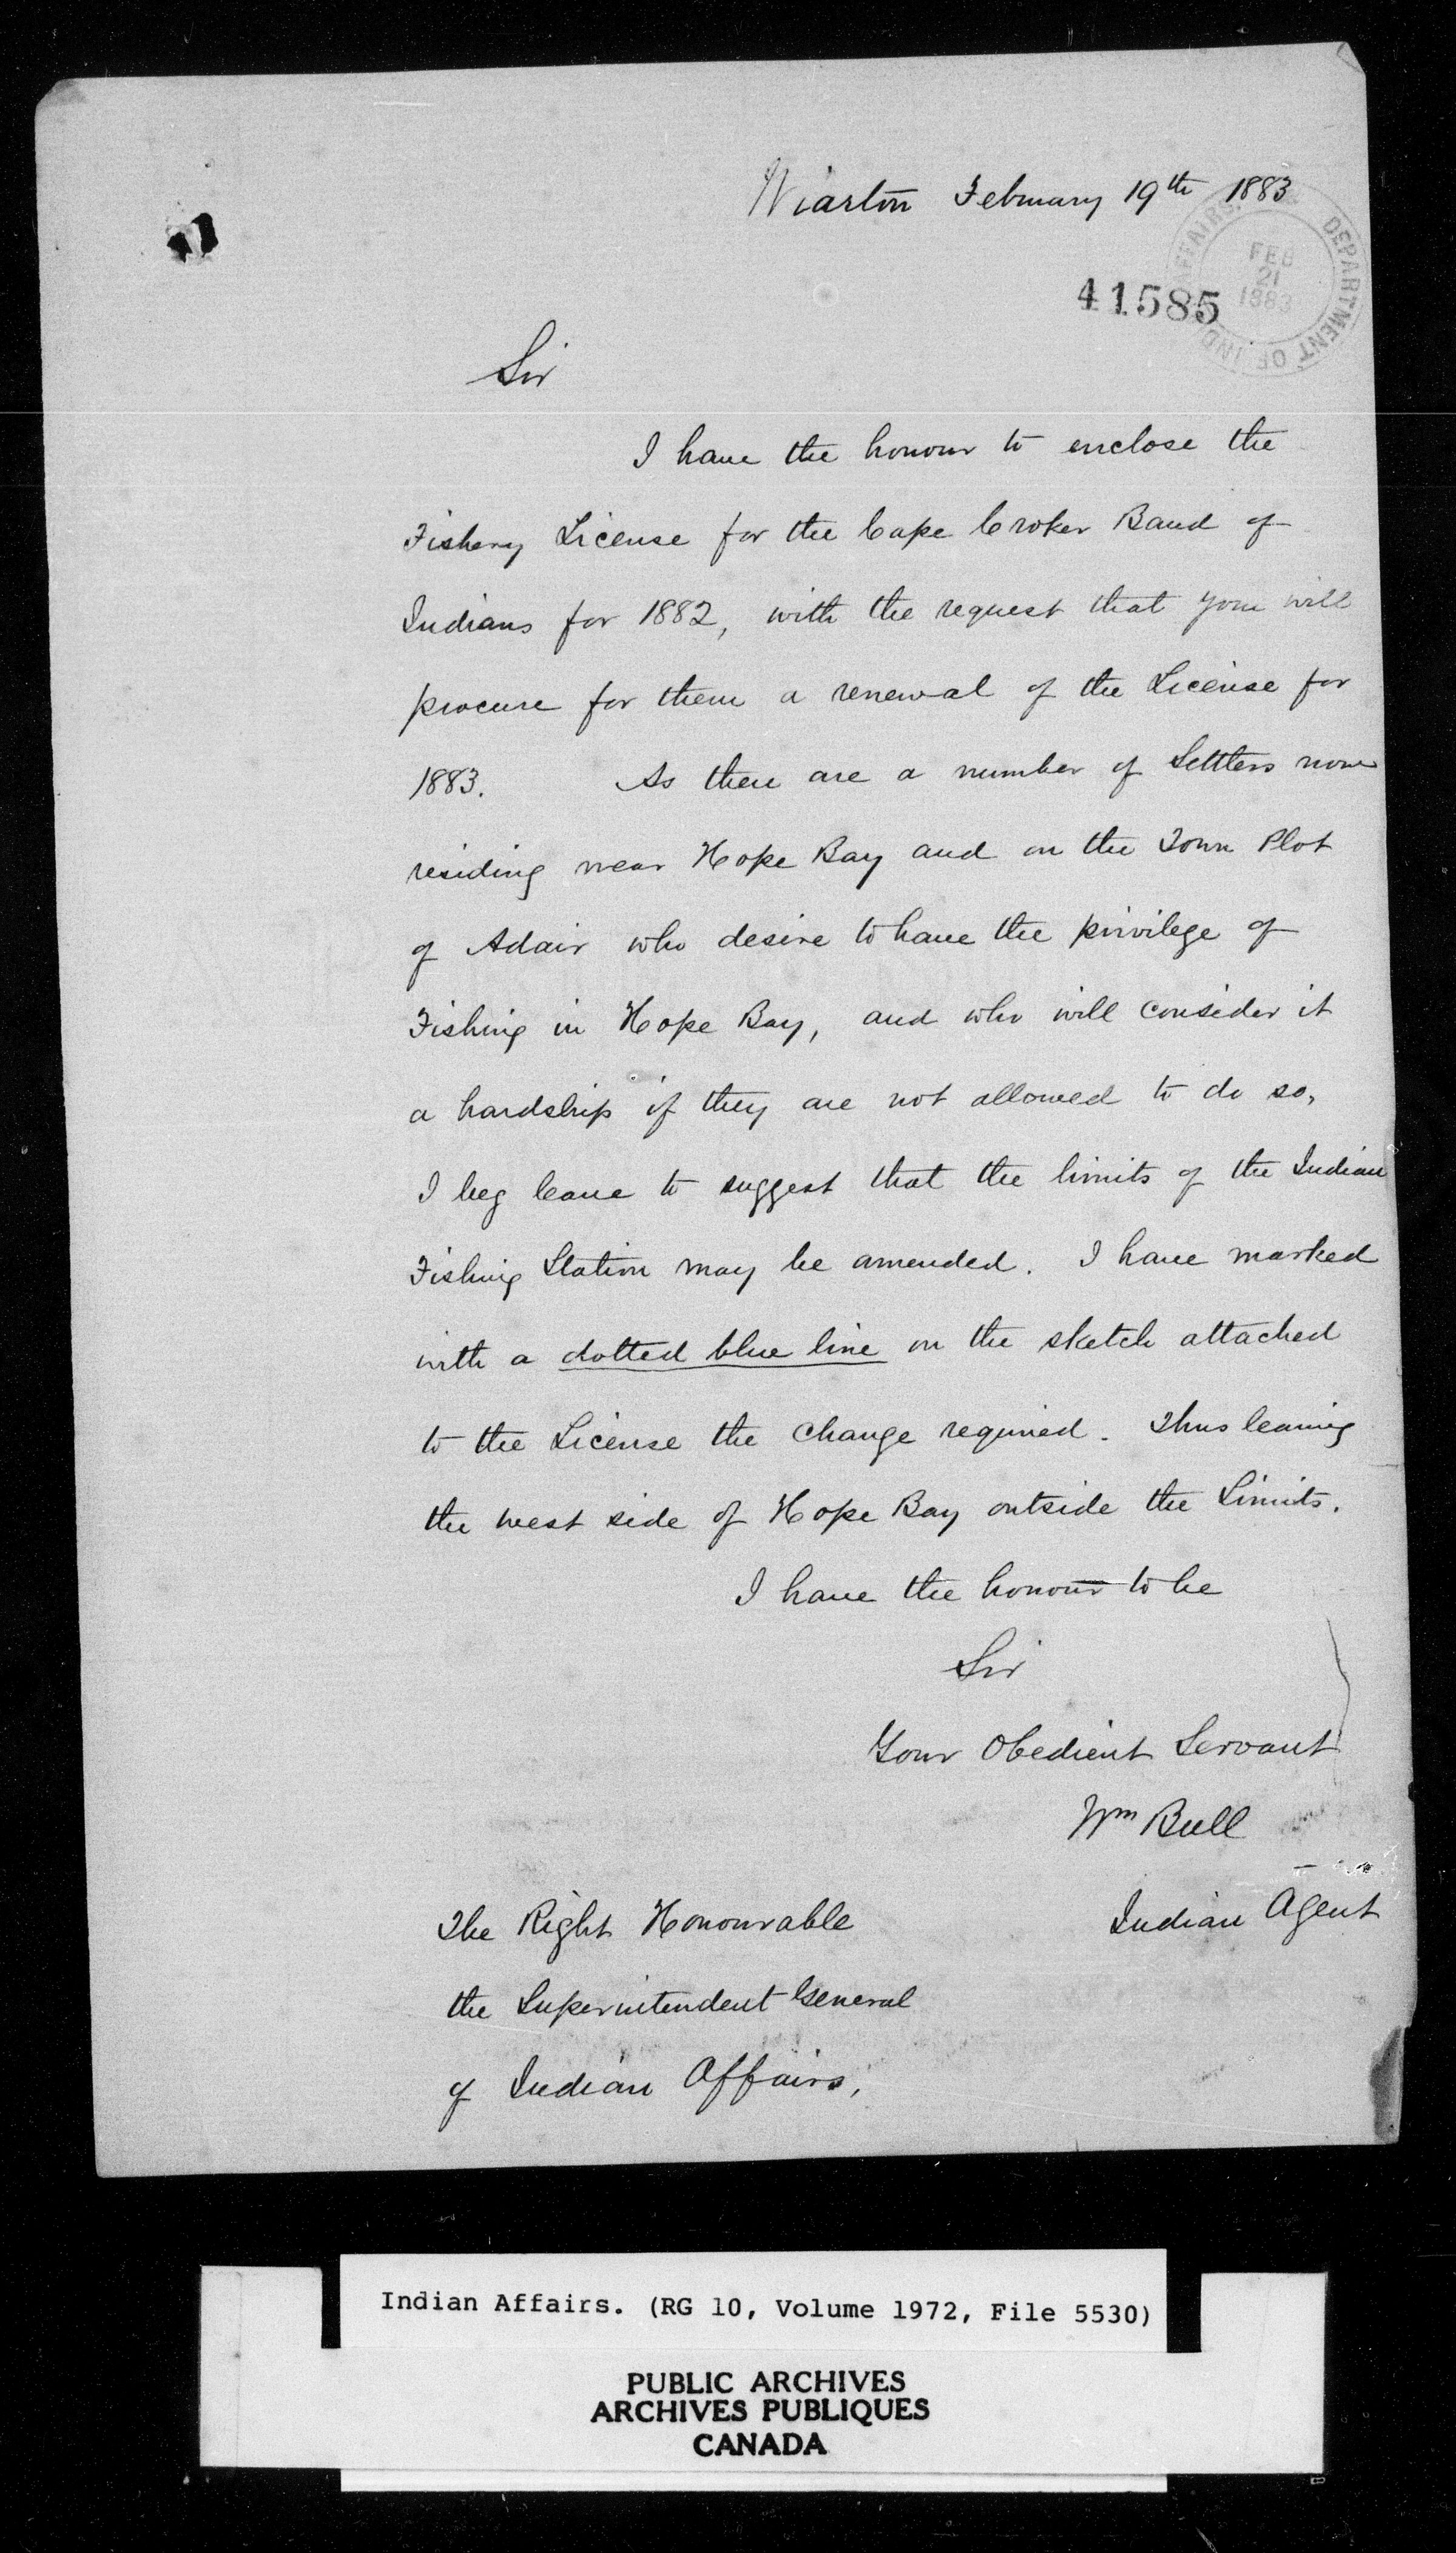 Wiarton February 19th 1883
DEPARTMENT OF IND AFFAIRS
FEB
21
1883
41585
Sir
I have the honour to enclose the
Fishery License for the Cape Croker Band of
Indians for 1882, with the request that you will
procure for them a renewal of the License for
1883. As there are a number of Settlers now
residing near Hope Bay and on the Town Plot
of Adair who desire to have the privilege of
Fishing in Hope Bay, and who will consider it
a hardship if they are not allowed to do so,
I beg leave to suggest that the limits of the Indian
Fishing Station may be amended. I have marked
with a dotted blue line on the sketch attached
to the License the change required. Thus leaving
the west side of Hope Bay outside the Limits.
I have the honour to be
Sir
Your Obedient Servant
Wm Bull
Indian Agent
The Right Honourable
the Superintendent General
of Indian Affairs,
Indian Affairs. (RG 10, Volume 1972, File 5530)
PUBLIC ARCHIVES
ARCHIVES PUBLIQUES
CANADA